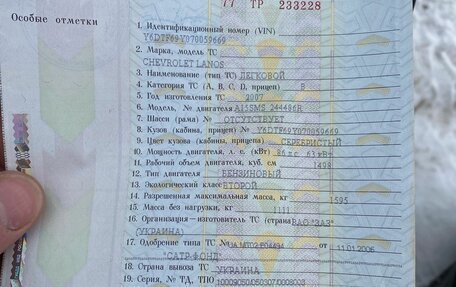 77 ТР 233228
Особые отметки
1. Идентификационный номер (VIN)
Y6DTF69Y070059669
2. Марка, модель ТС
CHEVROLET LANOS
3. Наименование (тип ТС) ЛЕГКОВОЙ
4. Категория ТС (А, В, С, D, прицеп) В
5. Год изготовления ТС 2007
6. Модель, № двигателя A15SMS 244486R
7. Шасси (рама) № ОТСУТСТВУЕТ
8. Кузов (кабина, прицеп) № Y6DTF69Y070059669
9. Цвет кузова (кабины, прицепа) СЕРЕБРИСТЫЙ
10. Мощность двигателя, л. с. (кВт) 86 лс 63 кВт
11. Рабочий объем двигателя, куб. см 1498
12. Тип двигателя БЕНЗИНОВЫЙ
13. Экологический класс ВТОРОЙ
14. Разрешенная максимальная масса, кг 1595
15. Масса без нагрузки, кг 1111
16. Организация—изготовитель ТС (страна) ВАО "ЗАЗ"
(УКРАИНА)
17. Одобрение типа ТС № UA.MT02.E04494 от 11.01.2006
"САТР-ФОНД"
18. Страна вывоза ТС УКРАИНА
19. Серия, № ТД, ТПО